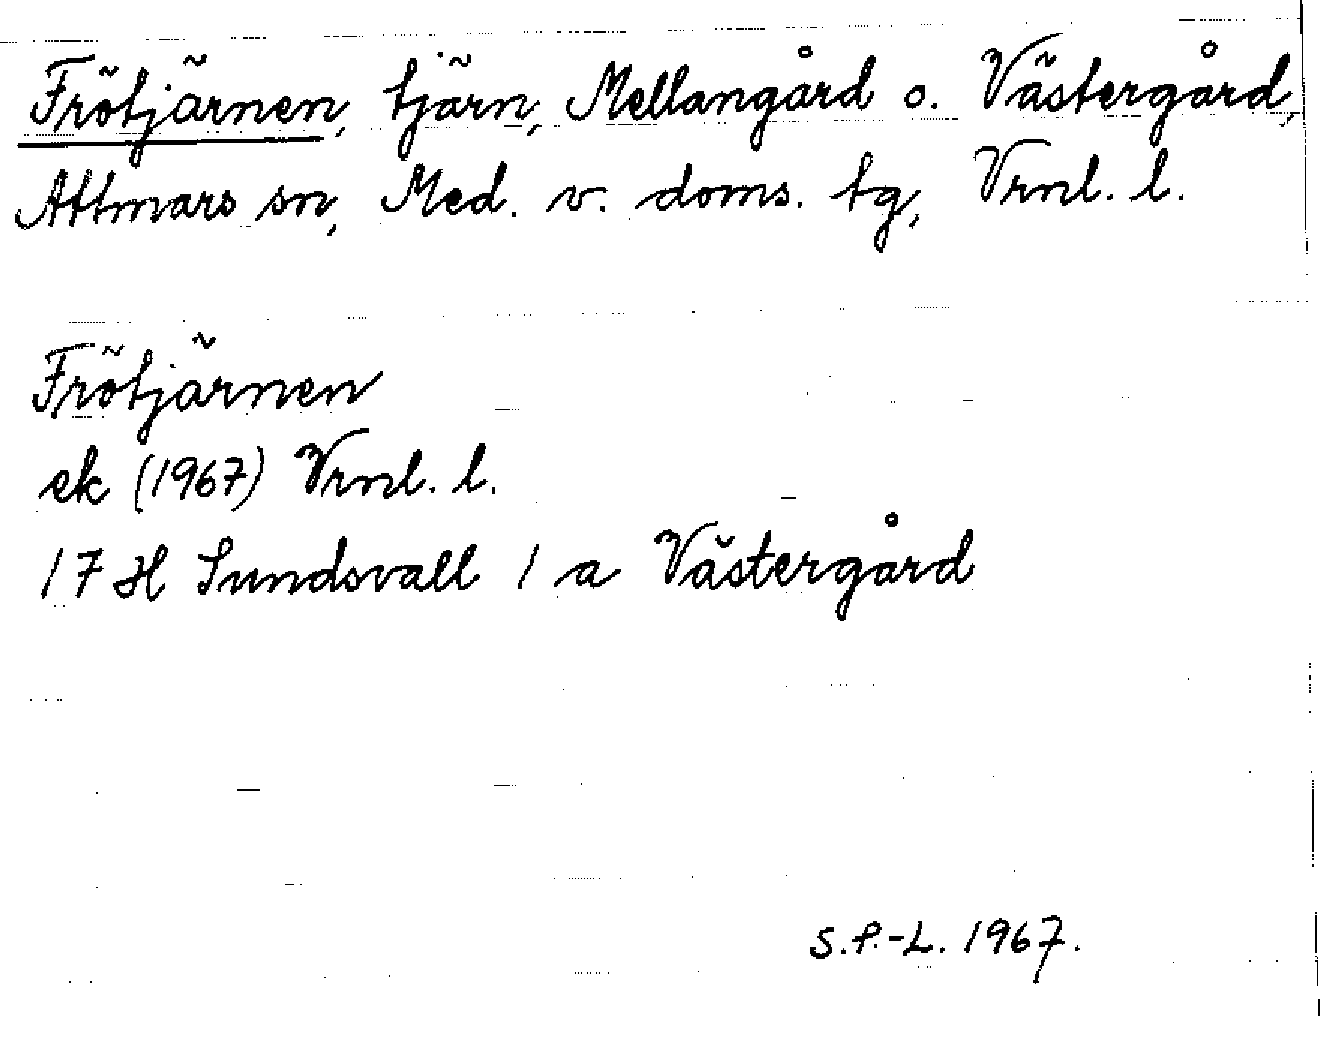 Frötjärnen, tjärn, Mellangård o. Västergård,
Attmars sn, Med. v. doms. tg, Vrnl. l.
Frötjärnen
ek (1967) Vrnl. l.
17 H Sundsvall 1 a Västergård
S.P.-L. 1967.